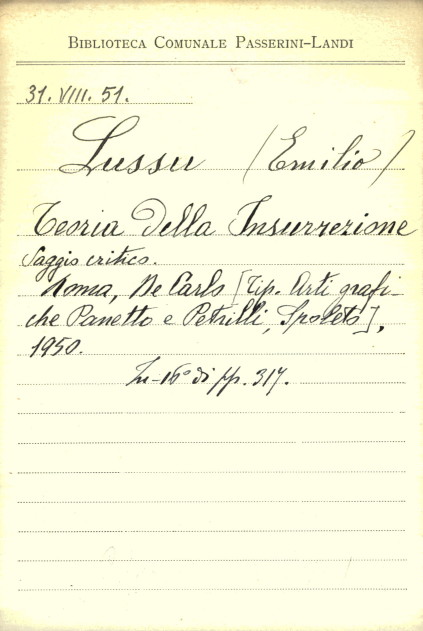 BIBLIOTECA COMUNALE PASSERINI-LANDI
31. VIII. 51.
Lussu (Emilio)
Teoria della Insurrezione
Saggio critico.
Roma, De Carlo [Tip. Arti grafi-
che Panetto e Petrilli, Spoleto],
1950.
In-16° di pp. 317.